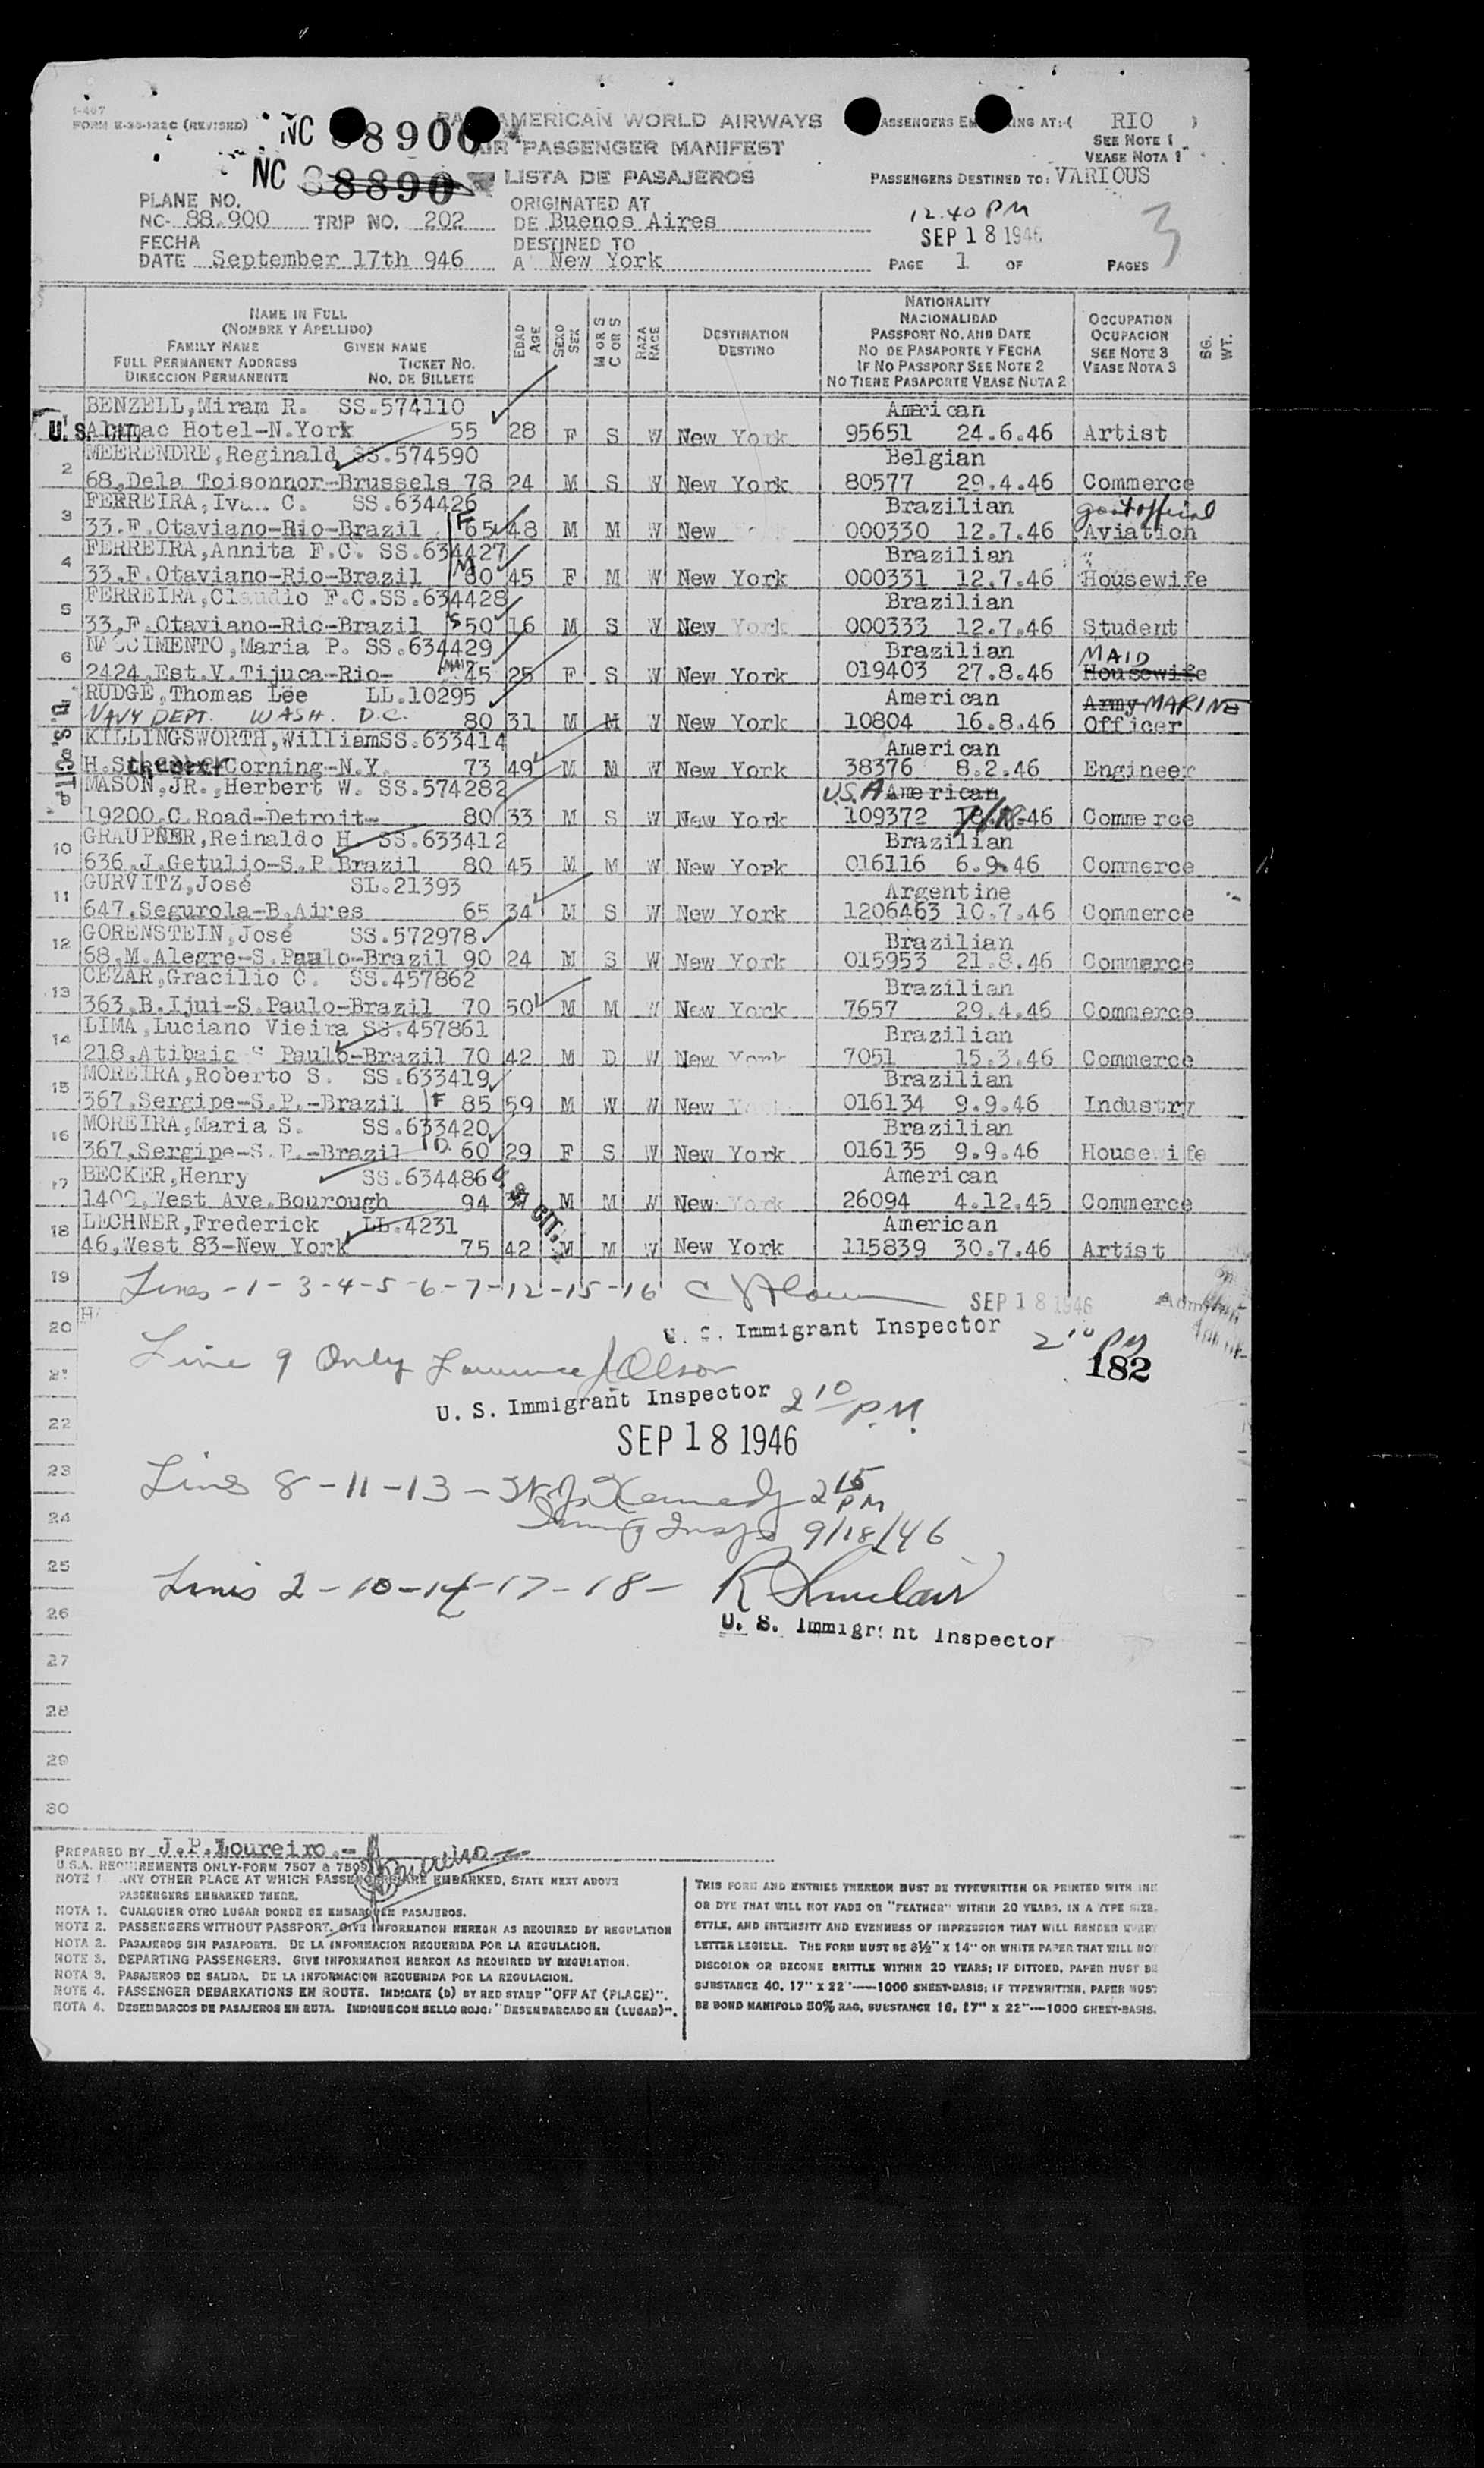 I-467
FORM E-35-122C (REVISED)
NC 88900
PAN AMERICAN WORLD AIRWAYS
AIR PASSENGER MANIFEST
LISTA DE PASAJEROS
PASSENGERS EMBARKING AT:( RIO )
SEE NOTE 1
VEASE NOTA 1
NC 88890
PASSENGERS DESTINED TO: VARIOUS
PLANE NO.
NC- 88.900 TRIP NO. 202
ORIGINATED AT
DE Buenos Aires
12.40 PM
SEP 18 1946
3
FECHA
DATE September 17th 946
DESTINED TO
A New York
PAGE 1 OF PAGES
NAME IN FULL
(NOMBRE Y APELLIDO)
FAMILY NAME GIVEN NAME
FULL PERMANENT ADDRESS TICKET NO.
DIRECCION PERMANENTE NO. DE BILLETE
EDAD AGE
SEXO SEX
M OR S C OR S
RAZA RACE
DESTINATION
DESTINO
NATIONALITY
NACIONALIDAD
PASSPORT NO. AND DATE
NO DE PASAPORTE Y FECHA
IF NO PASSPORT SEE NOTE 2
NO TIENE PASAPORTE VEASE NOTA 2
OCCUPATION
OCUPACION
SEE NOTE 3
VEASE NOTA 3
BG. WT.
BENZELL,Miram R. SS.574110 American
U.S. CIT. Hotel-N.York 55 28 F S W New York 95651 24.6.46 Artist
2 MEERENDRE,Reginald SS.574590 Belgian
68,Dela Toisonnor-Brussels 78 24 M S W New York 80577 29.4.46 Commerce
3 FERREIRA, C. SS.634426 Brazilian govt official
33.F.Otaviano-Rio-Brazil F 65 48 M M W New 000330 12.7.46 Aviation
4 FERREIRA,Annita F.C. SS.634427 Brazilian "
33.F.Otaviano-Rio-Brazil M 80 45 F M W New York 000331 12.7.46 Housewife
5 FERREIRA,Claudio F.C.SS.634428 Brazilian
33,F.Otaviano-Rio-Brazil S 50 16 M S W New York 000333 12.7.46 Student
6 NASCIMENTO,Maria P. SS.634429 Brazilian MAID
2424.Est.V.Tijuca-Rio- MAID 45 25 F S W New York 019403 27.8.46 Housewife
U.S. CIT'S
RUDGE,Thomas Lee LL.10295 American Army MARINE
NAVY DEPT. WASH. D.C. 80 31 M M W New York 10804 16.8.46 Officer
KILLINGSWORTH,WilliamSS.633414 American
Corning-N.Y. 73 49 M M W New York 38376 8.2.46 Engineer
9 MASON,JR.,Herbert W. SS.574282 U.S.A American
19200.C.Road-Detroit- 80 33 M S W New York 109372 46 Commerce
10 GRAUPNER,Reinaldo H. SS.633412 Brazilian
636.J.Getulio-S.P Brazil 80 45 M M W New York 016116 6.9.46 Commerce
11 GURVITZ,José SL.21393 Argentine
647.Segurola-B.Aires 65 34 M S W New York 1206463 10.7.46 Commerce
12 GORENSTEIN,José SS.572978 Brazilian
68.M.Alegre-S.Paulo-Brazil 90 24 M S W New York 015953 21.8.46 Commerce
13 CEZAR,Gracilio C. SS.457862 Brazilian
363,B.Ijui-S.Paulo-Brazil 70 50 M M W New York 7657 29.4.46 Commerce
14 LIMA,Luciano Vieira SS.457861 Brazilian
218.Atibaia S Paulo-Brazil 70 42 M D W New York 7051 15.3.46 Commerce
15 MOREIRA,Roberto S. SS.633419 Brazilian
367.Sergipe-S.P.-Brazil F 85 59 M W W New York 016134 9.9.46 Industry
16 MOREIRA,Maria S. SS.633420 Brazilian
367.Sergipe-S.P.-Brazil D 60 29 F S W New York 016135 9.9.46 Housewife
17 BECKER,Henry SS.634486 American
West Ave.Bourough 94 37 M M W New York 26094 4.12.45 Commerce
U.S. CIT.
18 LECHNER,Frederick LL.4231 American
46,West 83-New York 75 42 M M W New York 115839 30.7.46 Artist
19 Lines -1-3-4-5-6-7-12-15-16 SEP 18 1946
20 U. S. Immigrant Inspector 2 10 PM
182
21 Line 9 Only Lawrence J Olson
U. S. Immigrant Inspector 2 10 P.M.
22 SEP 18 1946
23 Lines 8-11-13- Kennedy 2 15 PM
24 Immig Insp 9/18/46
25 Lines 2-10-14-17-18- R Sinclair
26 U. S. Immigrant Inspector
27
28
29
30
PREPARED BY J.P.Loureiro.-
U.S.A. REQUIREMENTS ONLY-FORM 7507 & 7509
NOTE 1. ANY OTHER PLACE AT WHICH PASSENGERS ARE EMBARKED, STATE NEXT ABOVE
PASSENGERS EMBARKED THERE.
NOTA 1. CUALQUIER OTRO LUGAR DONDE SE EMBARQUEN PASAJEROS.
NOTE 2. PASSENGERS WITHOUT PASSPORT. GIVE INFORMATION HEREON AS REQUIRED BY REGULATION
NOTA 2. PASAJEROS SIN PASAPORTE. DE LA INFORMACION REQUERIDA POR LA REGULACION.
NOTE 3. DEPARTING PASSENGERS. GIVE INFORMATION HEREON AS REQUIRED BY REGULATION.
NOTA 3. PASAJEROS DE SALIDA. DE LA INFORMACION REQUERIDA POR LA REGULACION.
NOTE 4. PASSENGER DEBARKATIONS EN ROUTE. INDICATE (D) BY RED STAMP "OFF AT (PLACE)".
NOTA 4. DESEMBARCOS DE PASAJEROS EN RUTA. INDIQUE CON SELLO ROJO: "DESEMBARCADO EN (LUGAR)".
THIS FORM AND ENTRIES THEREON MUST BE TYPEWRITTEN OR PRINTED WITH INK
OR DYE THAT WILL NOT FADE OR "FEATHER" WITHIN 20 YEARS, IN A TYPE SIZE,
STYLE, AND INTENSITY AND EVENNESS OF IMPRESSION THAT WILL RENDER EVERY
LETTER LEGIBLE. THE FORM MUST BE 8½" X 14" ON WHITE PAPER THAT WILL NOT
DISCOLOR OR BECOME BRITTLE WITHIN 20 YEARS; IF DITTOED, PAPER MUST BE
SUBSTANCE 40, 17" X 22"----1000 SHEET-BASIS; IF TYPEWRITTEN, PAPER MUST
BE BOND MANIFOLD 50% RAG, SUBSTANCE 16, 17" X 22"----1000 SHEET-BASIS.